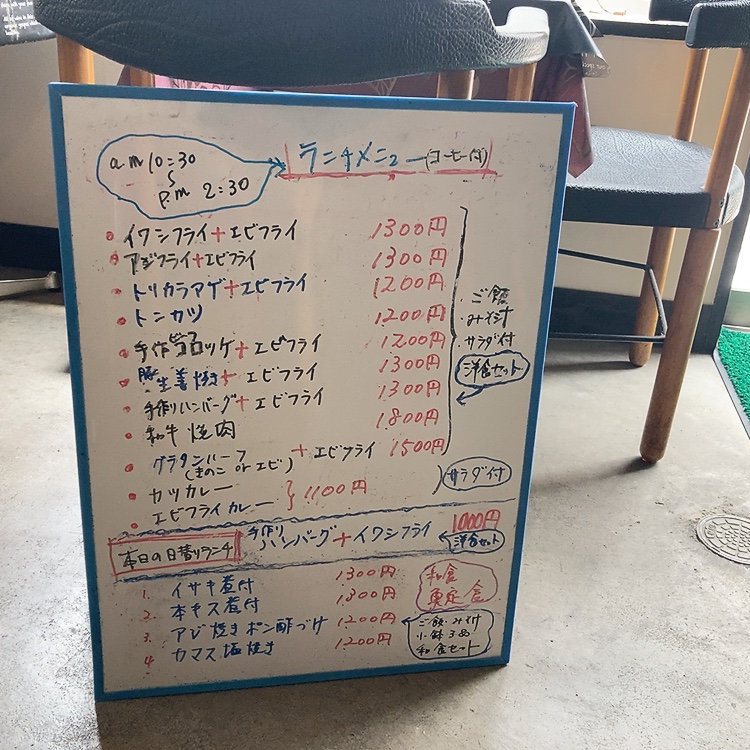 am 10:30
〜
P.m 2:30
ランチメニュー(コーヒー付)
イワシフライ+エビフライ 1300円
アジフライ+エビフライ 1300円
トリカラアゲ+エビフライ 1200円
トンカツ 1200円
手作りコロッケ+エビフライ 1200円
豚生姜焼き+エビフライ 1300円
手作りハンバーグ+エビフライ 1300円
和牛焼肉 1800円
グラタンハーフ
(きのこ or エビ) +エビフライ 1500円
カツカレー
エビフライカレー } 1100円
・ご飯
・みそ汁
・サラダ付
洋食セット
サラダ付
本日の日替りランチ
手作りハンバーグ+イワシフライ 1000円
洋食セット
1. イサキ煮付 1300円
2. 本キス煮付 1300円
3. アジ焼きポン酢づけ 1200円
4. カマス塩焼き 1200円
和食
定食
ご飯・みそ汁
小鉢3品
和食セット